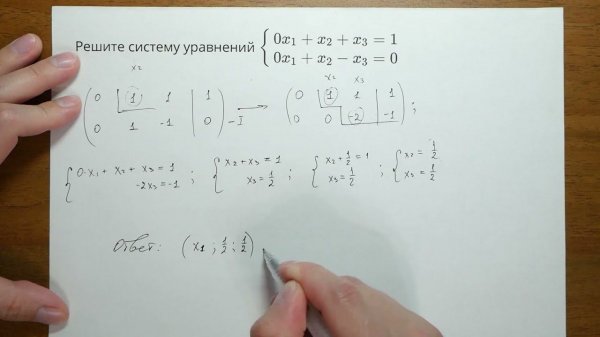 Решите систему уравнений { 0x₁ + x₂ + x₃ = 1
0x₁ + x₂ − x₃ = 0
x2 x2 x3
( 0 1 1 | 1 ) ⟶ ( 0 1 1 | 1 ) ;
( 0 1 -1 | 0 ) -I ( 0 0 -2 | -1 )
{ 0·x₁ + x₂ + x₃ = 1 ; { x₂ + x₃ = 1 ; { x₂ + 1/2 = 1 ; { x₂ = 1/2
-2x₃ = -1 x₃ = 1/2 x₃ = 1/2 x₃ = 1/2
Ответ: (x₁ ; 1/2 ; 1/2)